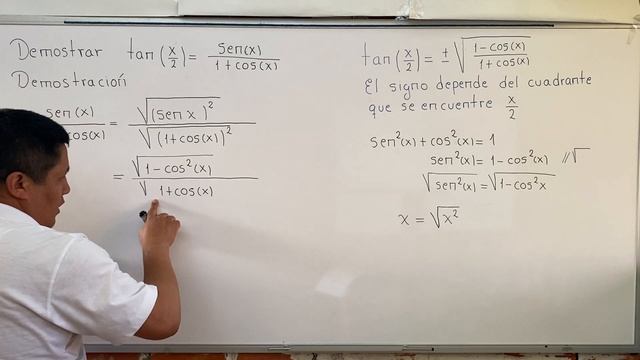 Demostrar tan(x/2) = sen(x)/1+cos(x)
Demostración
sen(x)/cos(x) = √(sen x)²/√(1+cos(x))²
= √1-cos²(x)/√ 1+cos(x)
tan(x/2) = ±√1-cos(x)/1+cos(x)
El signo depende del cuadrante
que se encuentre x/2
sen²(x)+cos²(x)=1
sen²(x)=1-cos²(x) //√
√sen²(x)=√1-cos²x
x=√x²